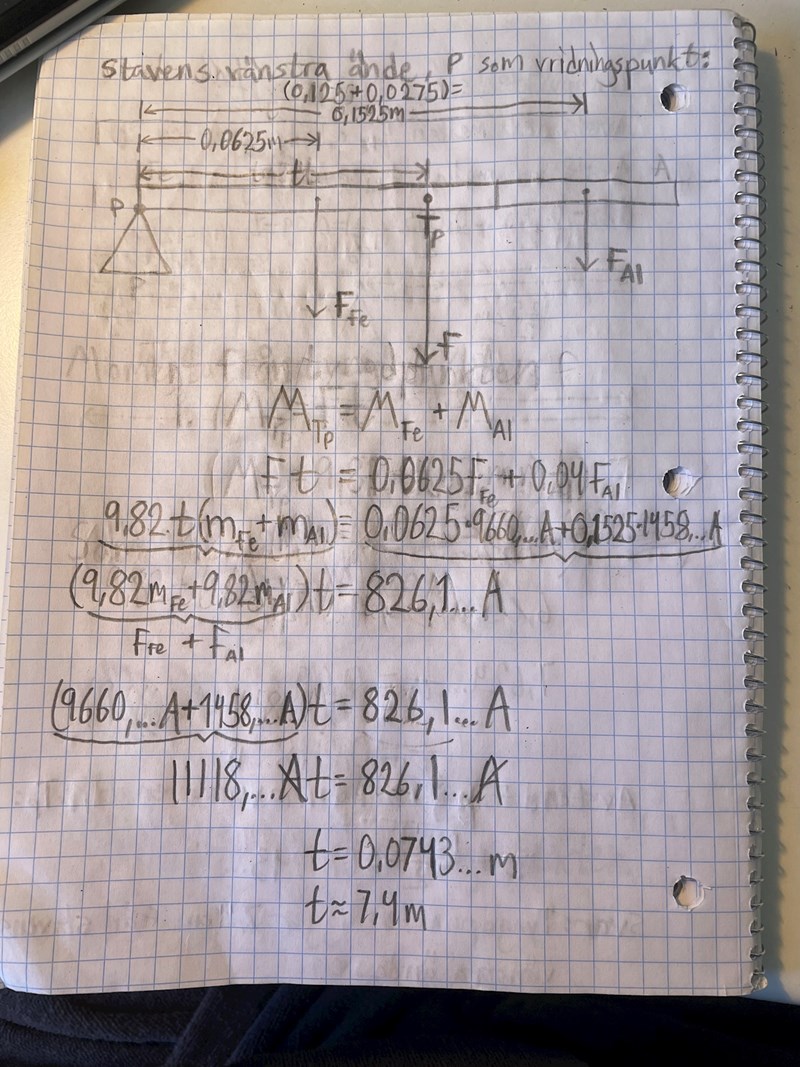 Stavens vänstra ände, P som vridningspunkt:
(0,125+0,0275)=
0,1525m
0,0625m
t
A
P
Tp
F_Al
F_Fe
F
M_Tp = M_Fe + M_Al
Ft = 0,0625F_Fe + 0,04F_Al
9,82·t(m_Fe+m_Al) = 0,0625·9660,...A+0,1525·1458,...A
(9,82m_Fe+9,82m_Al)t = 826,1...A
F_Fe + F_Al
(9660,...A+1458,...A)t = 826,1...A
11118,...At = 826,1...A
t = 0,0743...m
t ≈ 7,4m